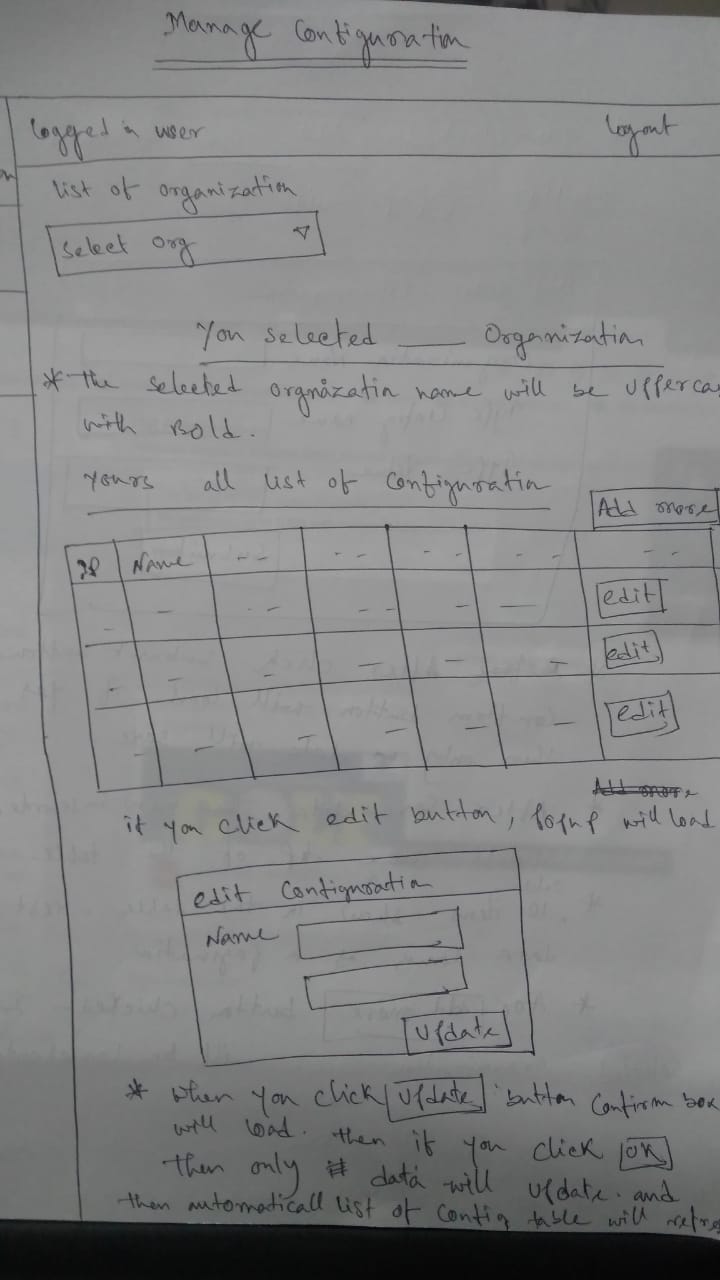 Manage Configuration
logged in user logout
list of organization
Select Org
You selected ____ Organization
* The selected orgnization name will be Upperca
with Bold.
yours all list of configuration Add more
ID Name -- -- -- -- --
edit
edit
edit
Add more
if you click edit button, popup will load
edit Configuration
Name
Update
* when you click Update button Confirm box
will load. then if you click OK
then only data will update. and
then automaticall list of config table will refre